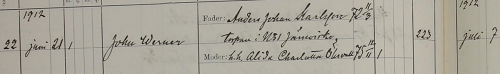 1912 1912
Fader: Anders Johan Karlsson 72 11/3
22 juni 21 1 John Werner torpare i 223 juli 7
Moder: h. h. Alida Charlotta 75 11/11 1